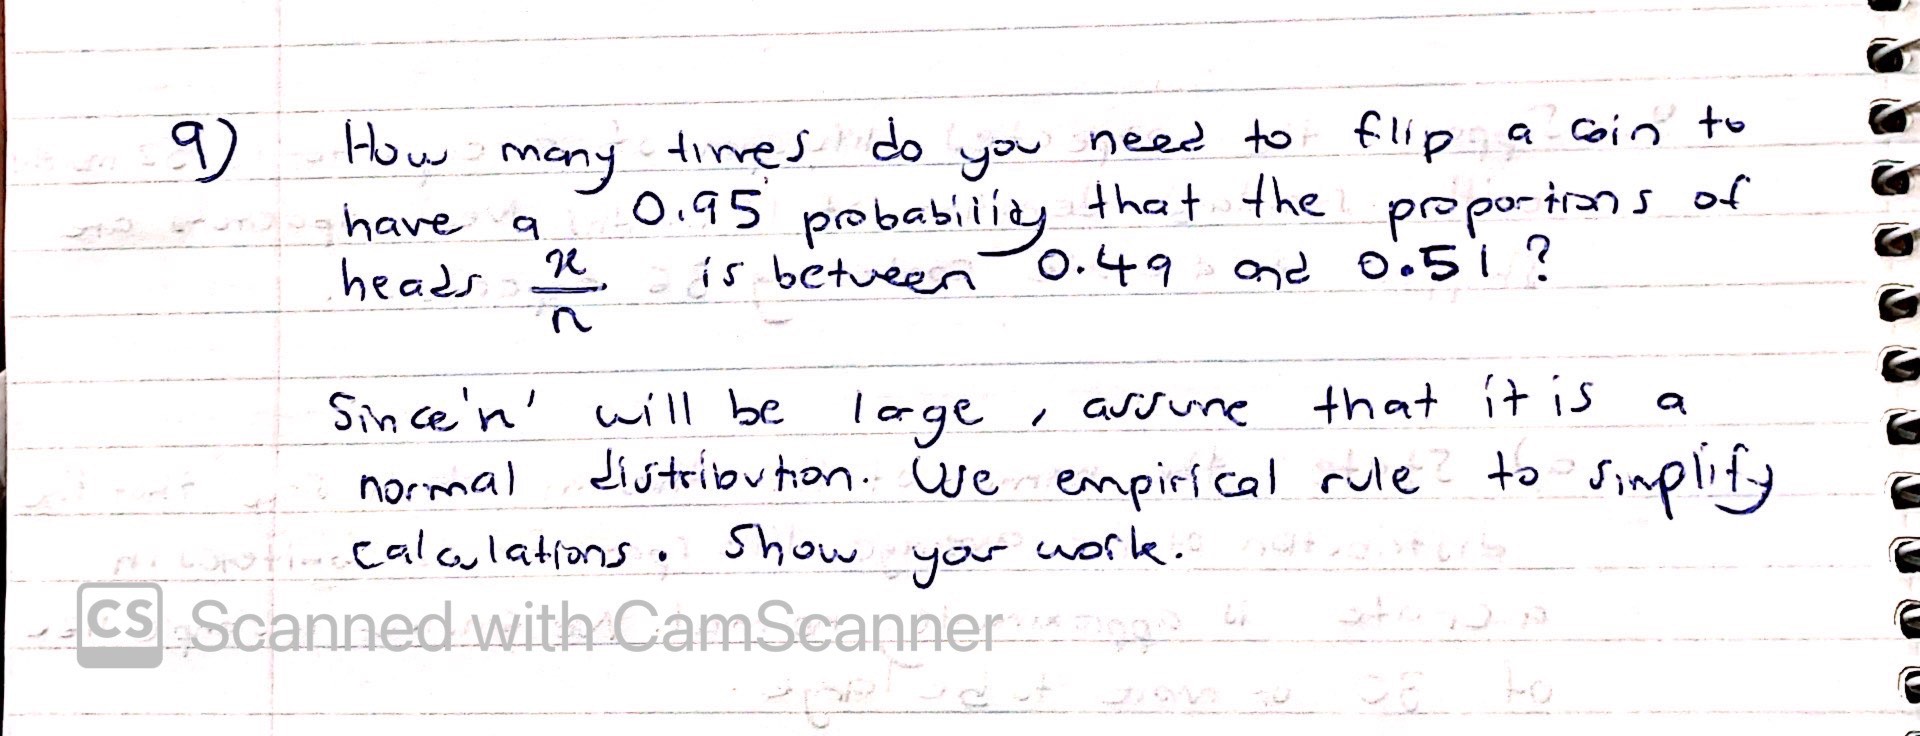 9) How many times do you need to flip a coin to
have a 0.95 probability that the proportions of
heads x/n is between 0.49 and 0.51 ?
Since 'n' will be large , assume that it is a
normal distribution. Use empirical rule to simplify
calculations. Show your work.
CS Scanned with CamScanner